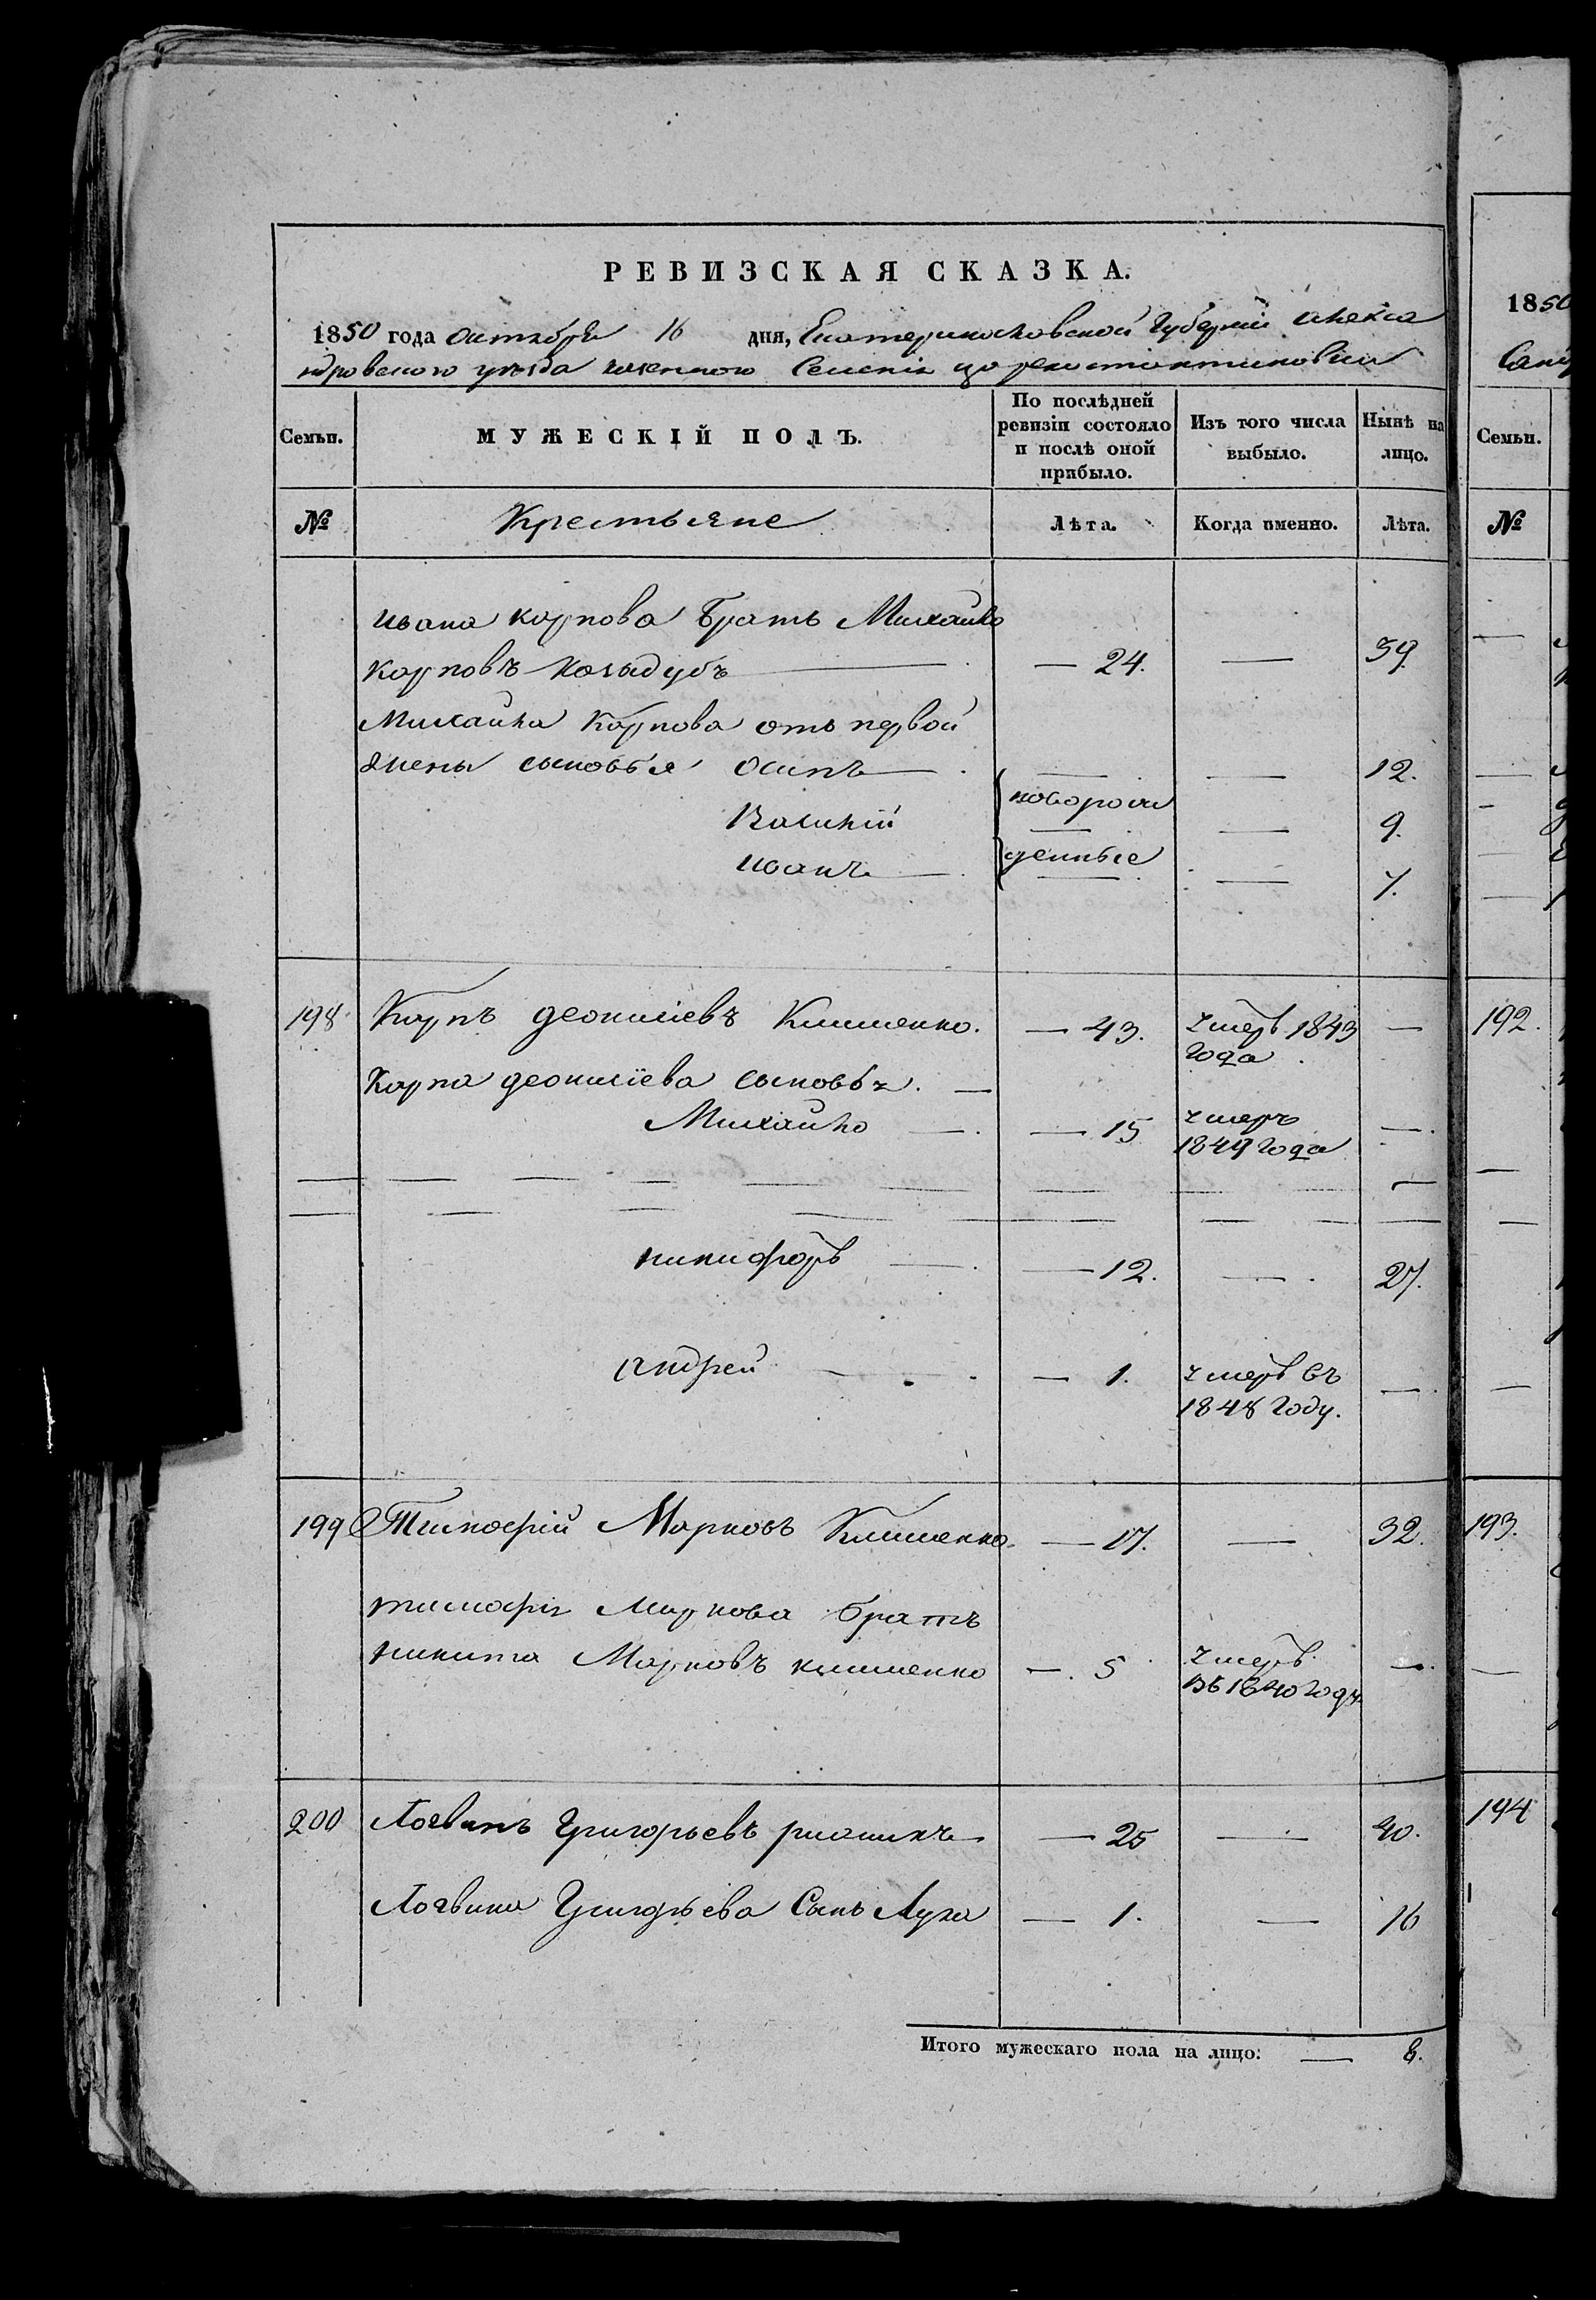 РЕВИЗСКАЯ СКАЗКА.
1850 года октября 16 дня, Екатеринославской Губернии Алекса
ндровского уезда казенного Селения Цареконстантиновки
Семьи. МУЖЕСКІЙ ПОЛЪ. По послѣдней ревизіи состояло и послѣ оной прибыло. Изъ того числа выбыло. Нынѣ на лицо.
№ Крестьяне Лѣта. Когда именно. Лѣта.
Ивана Карпова братъ Михайло
Карповъ — 24. — 39.
Михайла Карпова отъ первой
жены сыновья Осипъ — новорож — 12.
Василій — — 9.
Иванъ — денные — 7.
198 Карпъ Клименко. — 43. умеръ 1843 года —
Карпа сыновья. —
Михайло — — 15 умеръ 1849 года —
Никифоръ — — 12. — 27.
Андрей — — 1. умеръ въ 1848 году. —
199 Тимофій Марковъ Клименко. — 17. — 32.
Тимофія Маркова братъ
Никита Марковъ Клименко — 5 умеръ въ 1840 году —
200 Логвинъ Григорьевъ — 25 — 40.
Логвина Григорьева Сынъ Лука — 1. — 16
Итого мужескаго пола на лицо: — 8.
1850
Семьи.
№
192.
193.
194